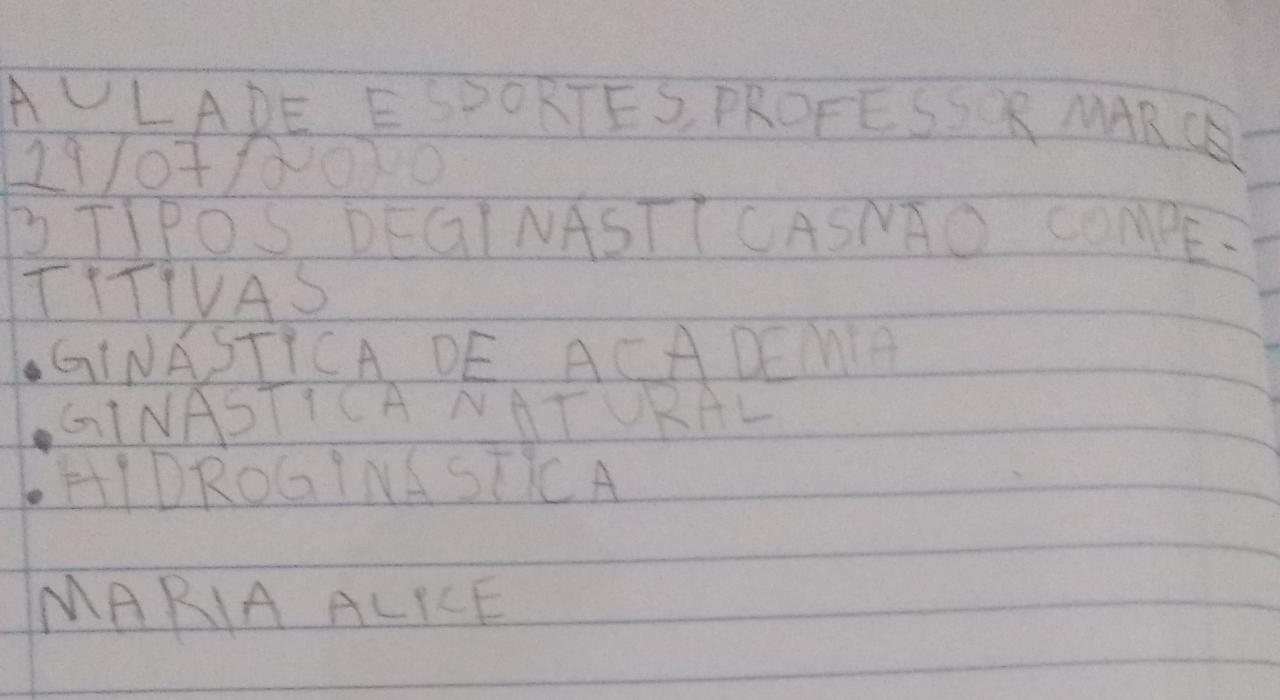 AULA DE ESPORTES, PROFESSOR MARCEL
29/07/2020
3 TIPOS DE GINÁSTICAS NÃO COMPE-
TITIVAS
• GINÁSTICA DE ACADEMIA
• GINÁSTICA NATURAL
• HIDROGINÁSTICA
MARIA ALICE